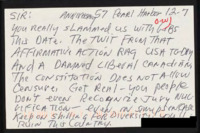 SIR: Anniversary 57 Pearl Harbor 12-7
You really slammed us with this
This Date. To get it from that
Affirmative Action Rag USA Today
And a Damned Liberal Canadian,
The Constitution Does not allow
Censure. Get real - you people
Don't even Recognize Jury Null
ification - even in
Keep on shilling for Diversity you'll
Ruin This Country.